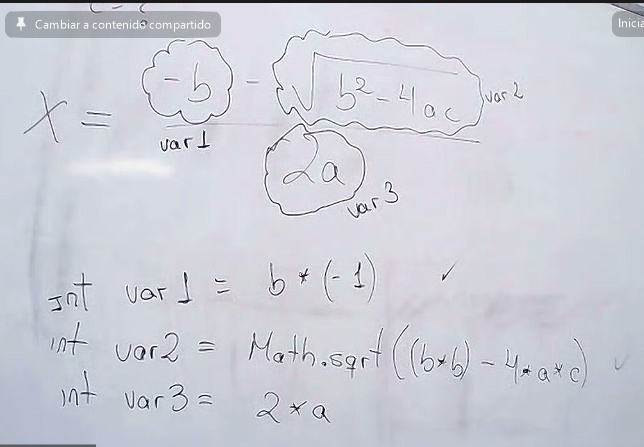 Cambiar a contenido compartido
Inicia
X = -b - √b² - 4ac
var 1
var 2
2a
var 3
Int var 1 = b * (-1) ✓
int var 2 = Math.sqrt((b*b) - 4*a*c) ✓
int var 3 = 2 * a